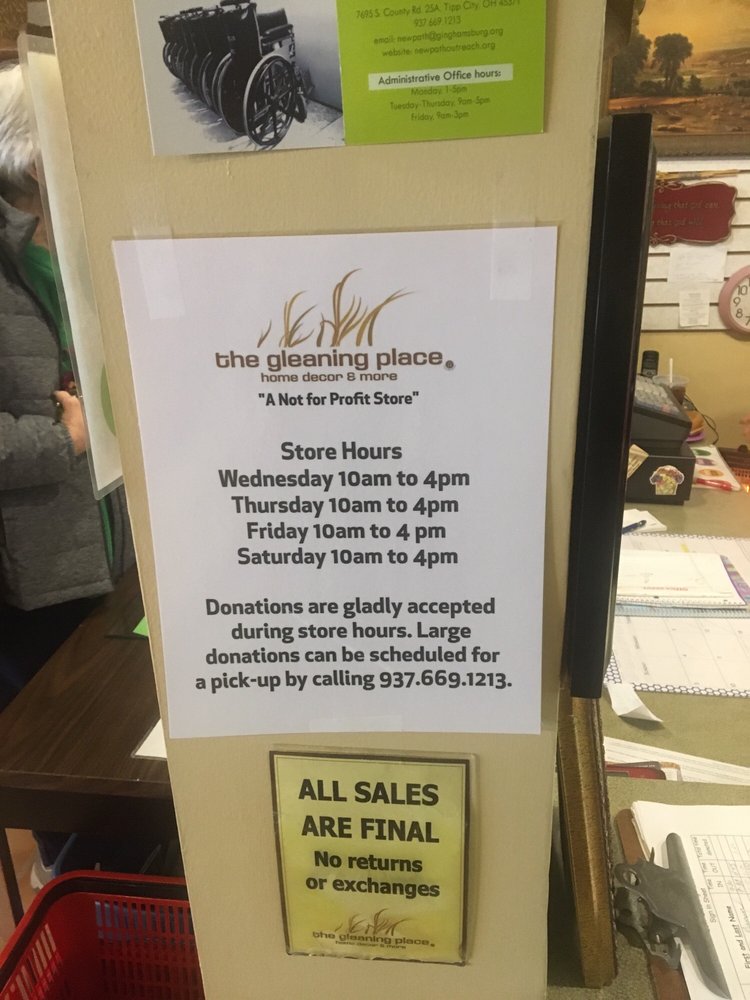 7695 S. County Rd. 25A, Tipp City, OH 45371
937.669.1213
email: newpath@ginghamsburg.org
website: newpathoutreach.org
Administrative Office hours:
Monday, 1-5pm
Tuesday-Thursday, 9am-5pm
Friday, 9am-3pm
the gleaning place
home decor & more
"A Not for Profit Store"
Store Hours
Wednesday 10am to 4pm
Thursday 10am to 4pm
Friday 10am to 4 pm
Saturday 10am to 4pm
Donations are gladly accepted
during store hours. Large
donations can be scheduled for
a pick-up by calling 937.669.1213.
ALL SALES
ARE FINAL
No returns
or exchanges
the gleaning place
home decor & more
10
9
8
7
Sign In Sheet
Time IN
Time OUT
First and Last Name